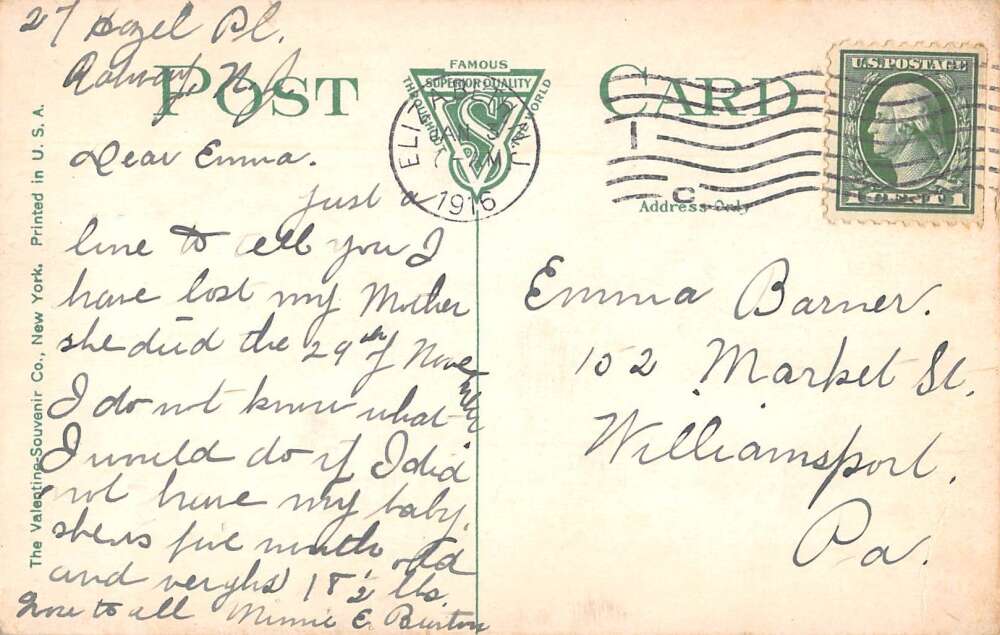 27 Hazel Pl.
Rahway, N. J.
POST CARD
FAMOUS
SUPERIOR QUALITY
THROUGHOUT THE WORLD
VS
ELIZABETH, N.J.
JAN 3
1916
U.S. POSTAGE
1 CENT 1
Address Only
Dear Emma.
Just a
line to tell you I
have lost my Mother
she died the 29th of Nove
mber
I do not know what
I would do if I did
not have my baby.
she is five month old
and weighs 18 1/2 lbs.
Love to all Minnie E. Burton
Emma Barner.
102 Market St.
Williamsport,
Pa.
The Valentine-Souvenir Co., New York. Printed in U. S. A.